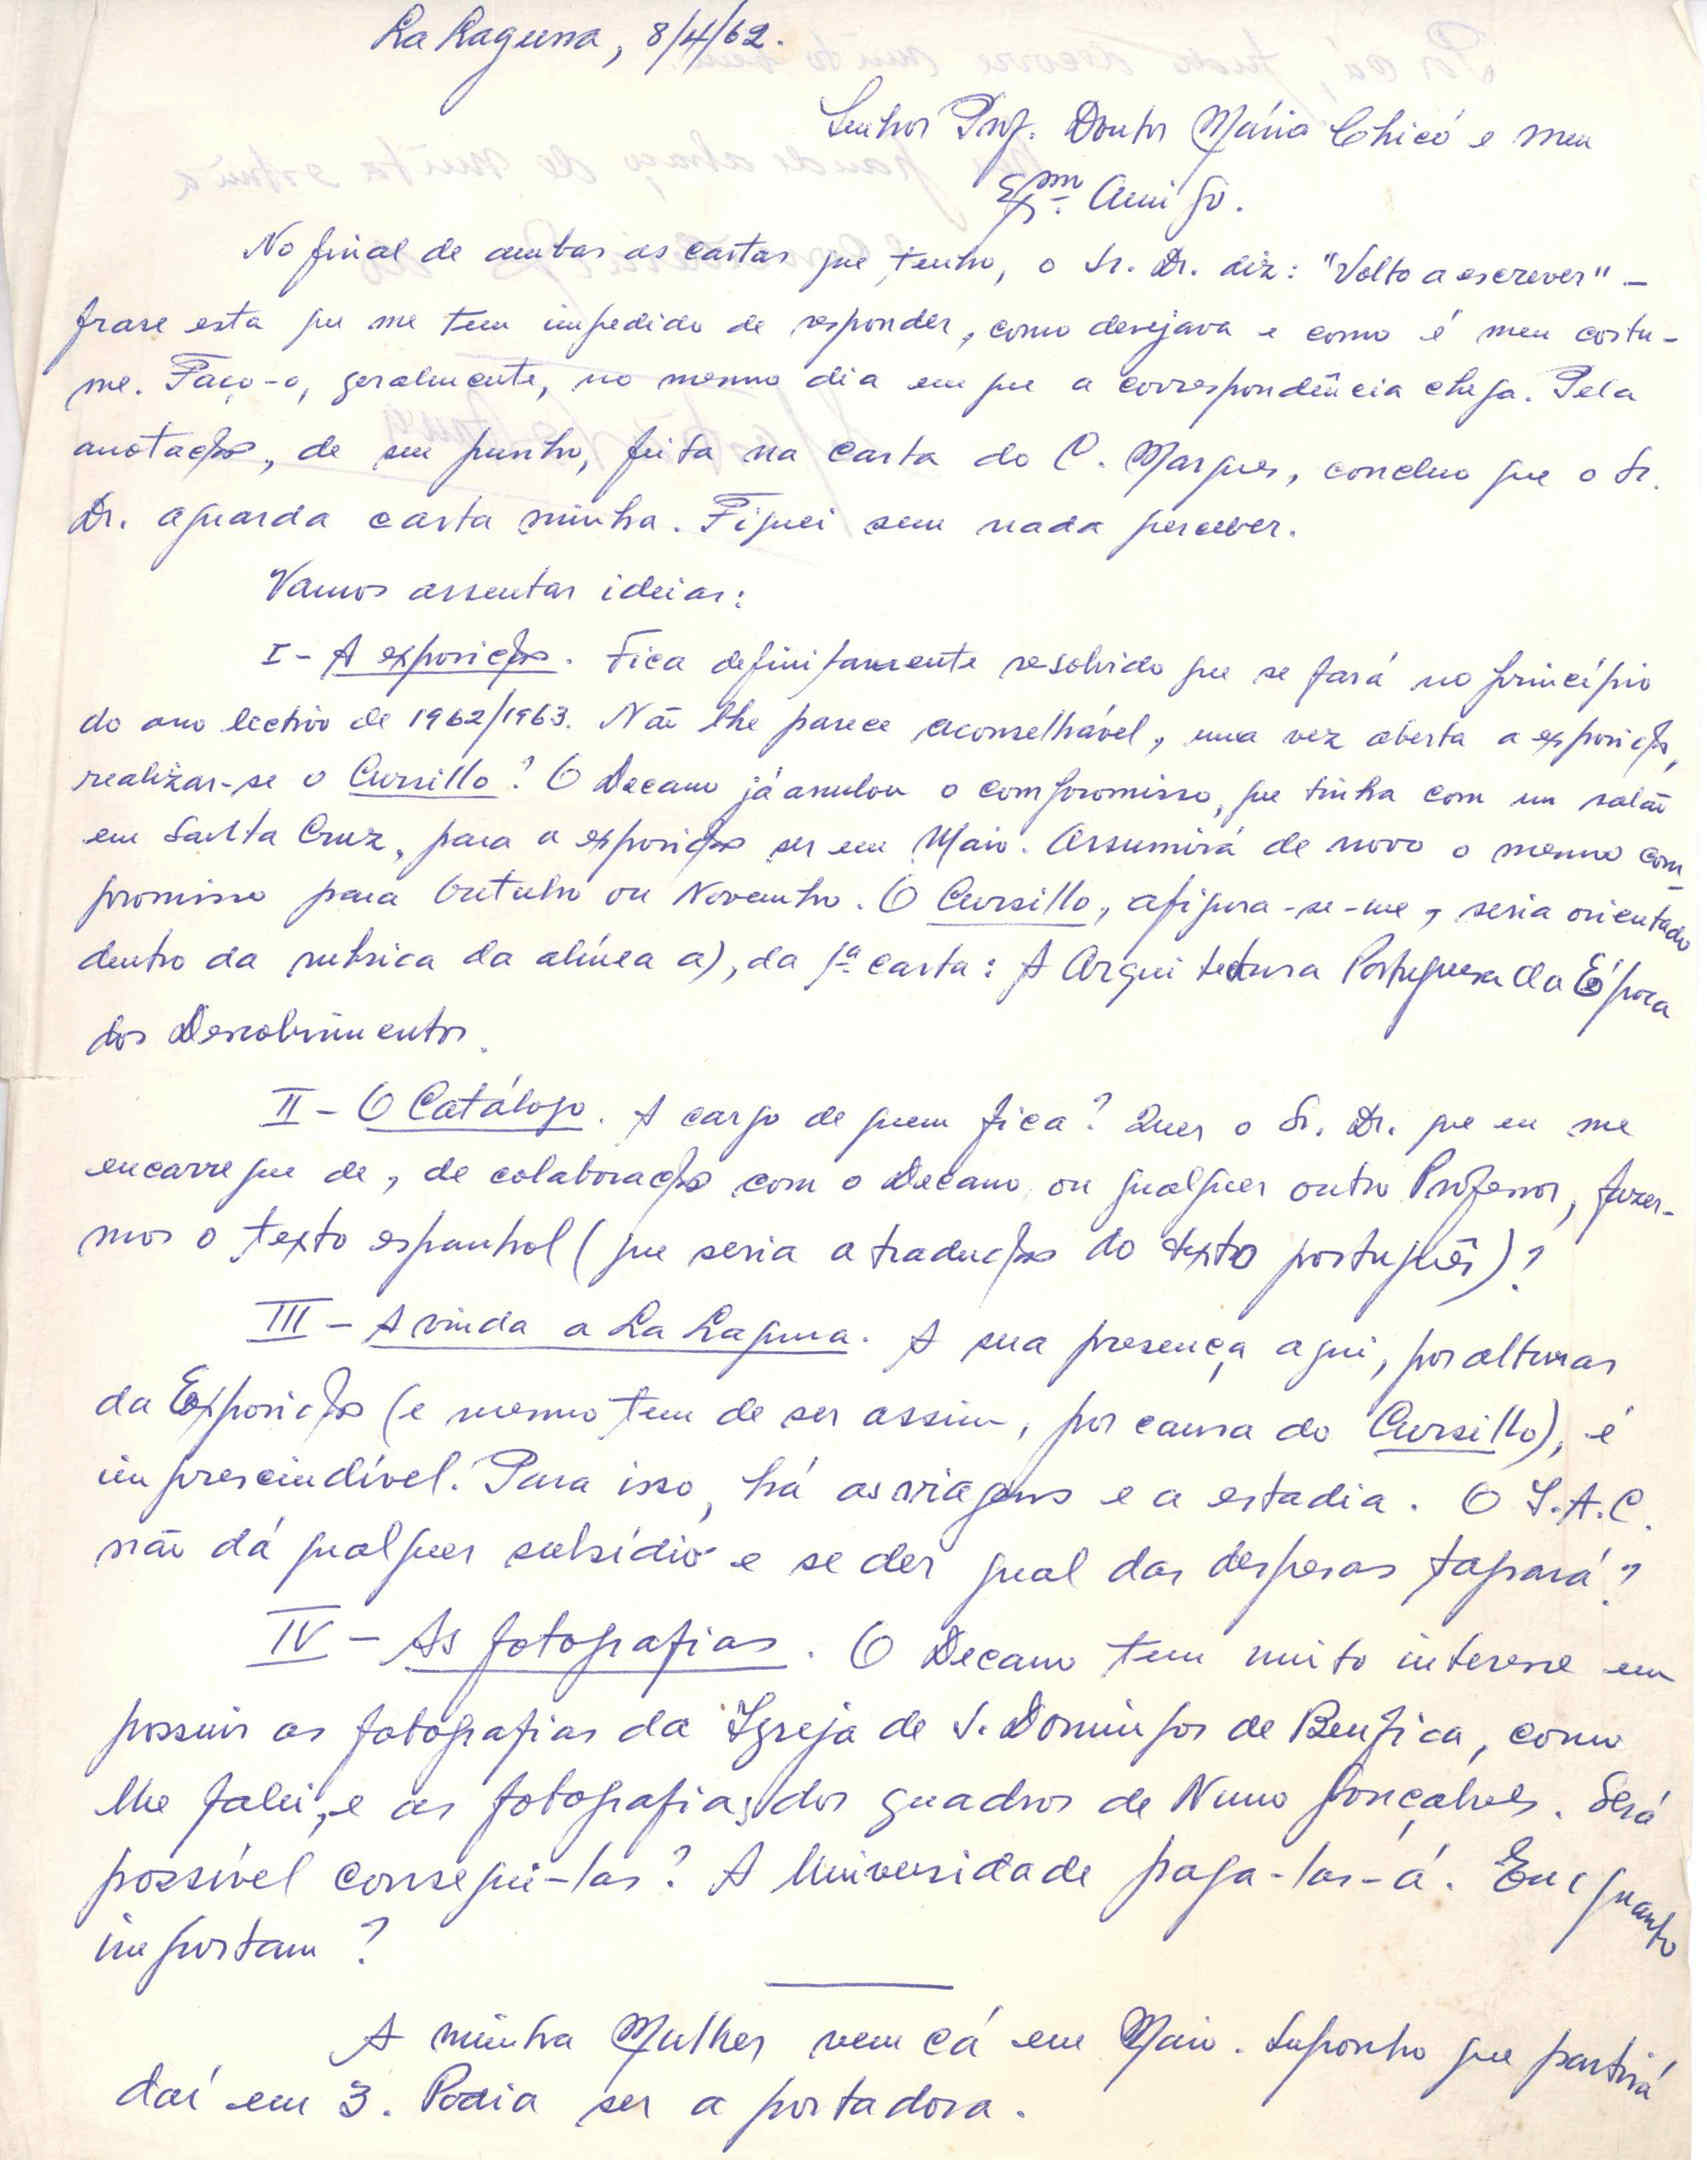 La Laguna, 8/4/62.
Senhor Prof. Doutor Mário Chicó e meu
Exmº Amigo.
No final de ambas as cartas que tenho, o Sr. Dr. diz: "Volto a escrever" –
frase esta que me tem impedido de responder, como desejava e como é meu costu-
me. Faço-o, geralmente, no mesmo dia em que a correspondência chega. Pela
anotação, de seu punho, feita na carta do C. Marques, concluo que o Sr.
Dr. aguarda carta minha. Fiquei sem nada perceber.
Vamos assentar ideias:
I – A exposição. Fica definitamente resolvido que se fará no princípio
do ano lectivo de 1962/1963. Não lhe parece aconselhável, uma vez aberta a exposição,
realizar-se o Cursillo? O Decano já anulou o compromisso, que tinha com um salão
em Santa Cruz, para a exposição ser em Maio. Assumirá de novo o mesmo com-
promisso para Outubro ou Novembro. O Cursillo, afigura-se-me, seria orientado
dentro da rubrica da alínea a), da 1ª carta: A Arquitectura Portuguesa da Época
dos Descobrimentos.
II – O Catálogo. A cargo de quem fica? Quer o Sr. Dr. que eu me
encarregue de, de colaboração com o Decano ou qualquer outro Professor, fazer-
mos o texto espanhol (que seria a tradução do texto português)?
III – A vinda a La Laguna. A sua presença aqui, por alturas
da Exposição (e mesmo tem de ser assim, por causa do Cursillo), é
imprescindível. Para isso, há as viagens e a estadia. O I.A.C.
não dá qualquer subsídio e se der qual das despesas tapará?
IV – As fotografias. O Decano tem muito interesse em
possuir as fotografias da Igreja de S. Domingos de Benfica, como
lhe falei, e as fotografias dos quadros de Nuno Gonçalves. Será
possível consegui-las? A Universidade paga-las-á. Em quanto
importam?
A minha Mulher vem cá em Maio. Suponho que partirá
daí em 3. Podia ser a portadora.